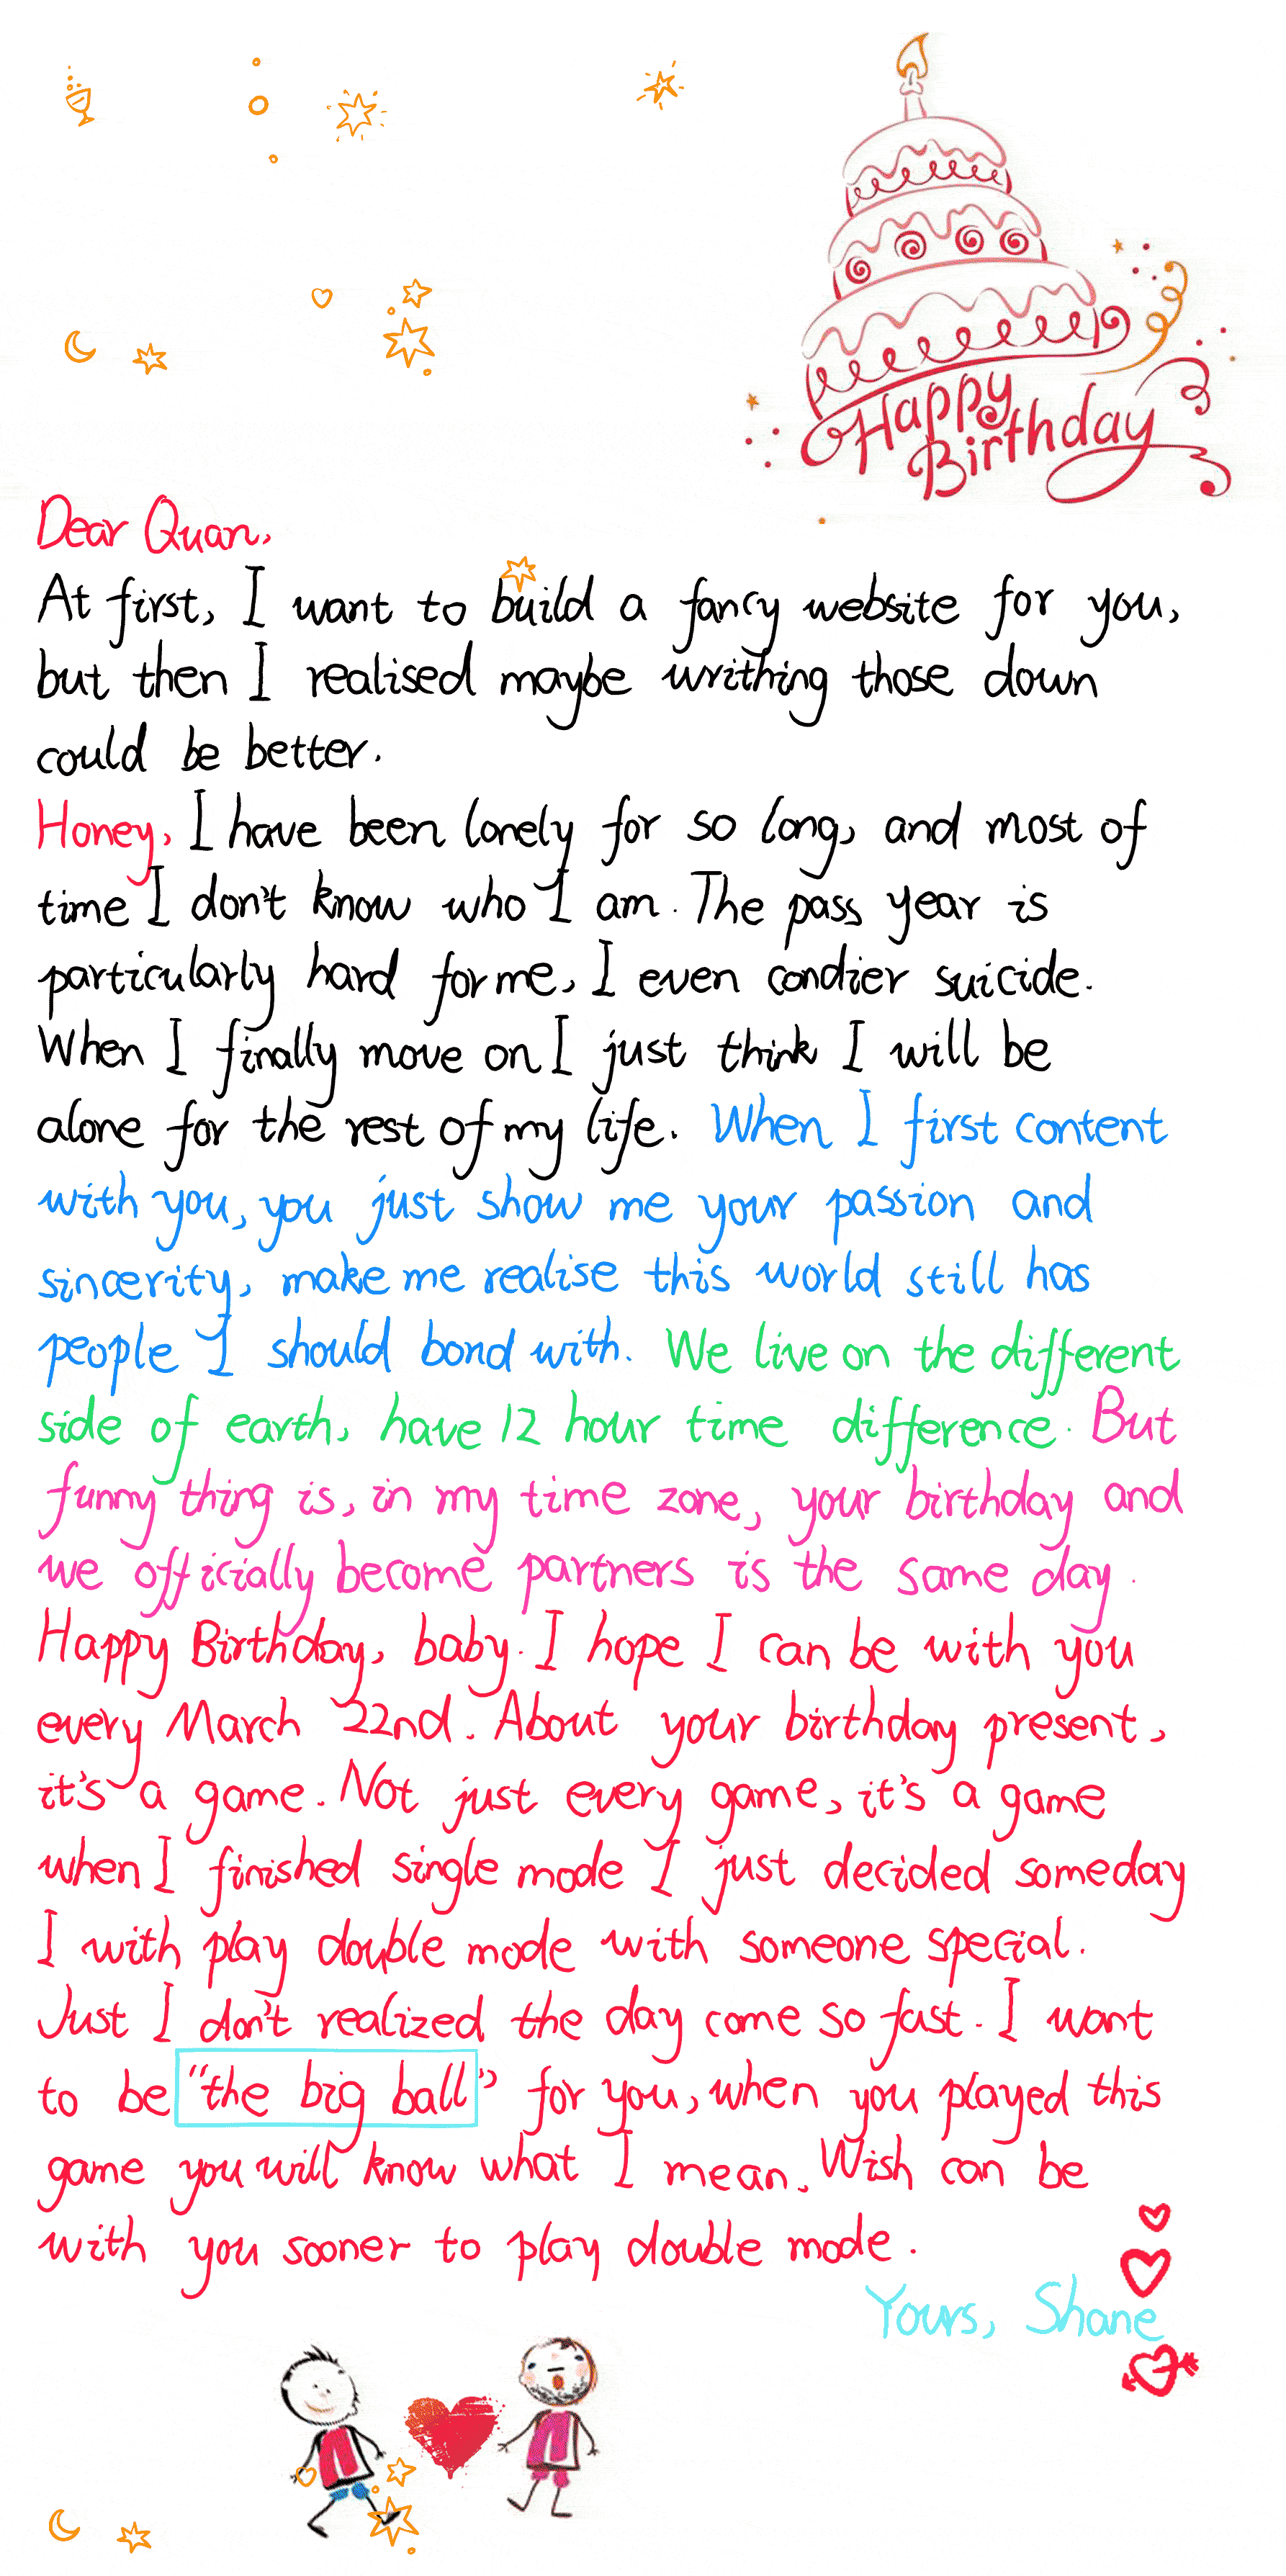 Happy
Birthday
Dear Quan,
At first, I want to build a fancy website for you,
but then I realised maybe writhing those down
could be better.
Honey, I have been lonely for so long, and most of
time I don't know who I am. The pass year is
particularly hard for me, I even condier suicide.
When I finally move on I just think I will be
alone for the rest of my life. When I first content
with you, you just show me your passion and
sincerity, make me realise this world still has
people I should bond with. We live on the different
side of earth, have 12 hour time difference. But
funny thing is, in my time zone, your birthday and
we officially become partners is the same day.
Happy Birthday, baby. I hope I can be with you
every March 22nd. About your birthday present,
it's a game. Not just every game, it's a game
when I finished single mode I just decided someday
I with play double mode with someone special.
Just I don't realized the day come so fast. I want
to be "the big ball" for you, when you played this
game you will know what I mean. Wish can be
with you sooner to play double mode.
Yours, Shane